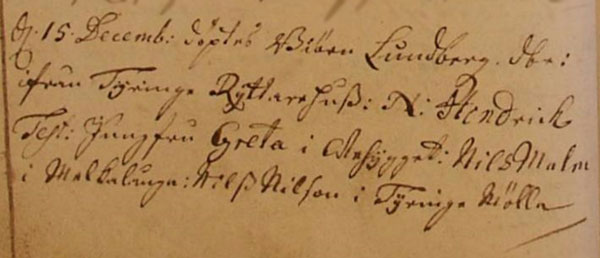 D. 15. Decemb: döptes Biörn Lundberg. dbr:
ifrån Tyringe Ryttarehuß: N: Hendrick
Test: Jungfru Greta i Nils Malm
i Mälkelunga: Nilß Nilson i Tyringe Mölla